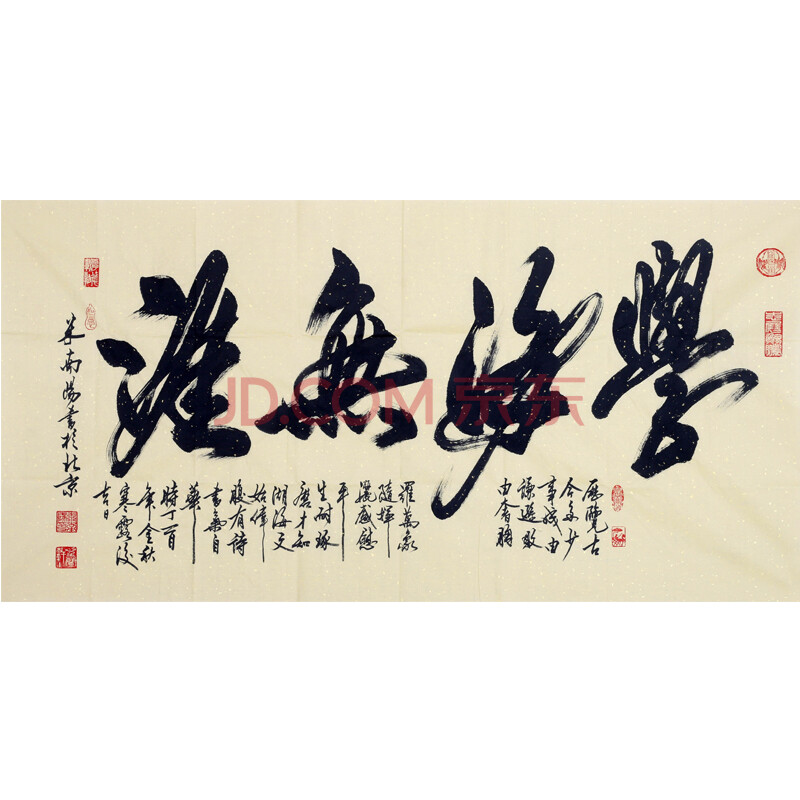 學海無涯
歷覽古
今多少
事成由
謙遜敗
由奢
羅萬象
隨揮
灑感慰
平
生耐琢
磨才知
湖海
始偉
腹有詩
書氣自
華
時丁酉
年金秋
寒露後
吉日
米南陽書於北京
JD.COM 京东